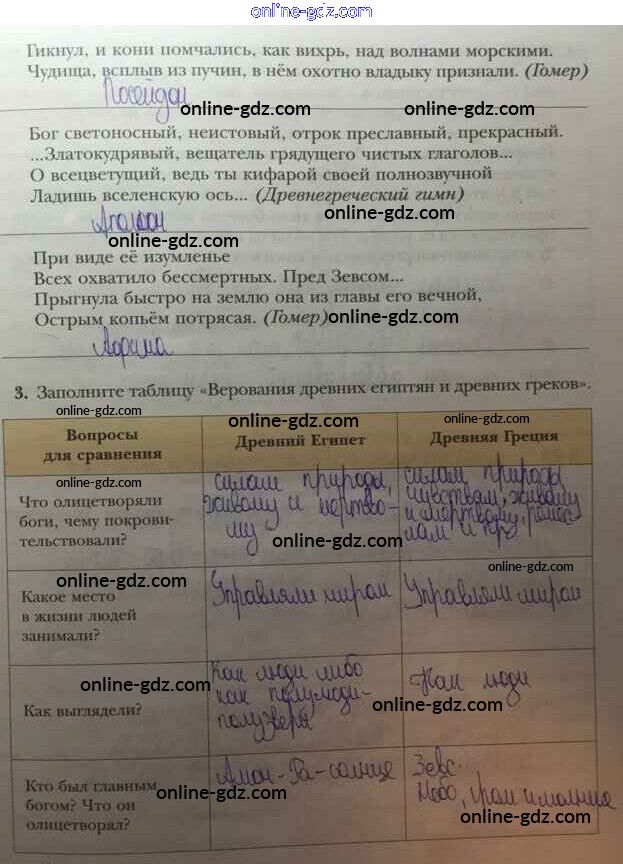 online-gdz.com
Гикнул, и кони помчались, как вихрь, над волнами морскими.
Чудища, всплыв из пучин, в нём охотно владыку признали. (Гомер)
Посейдон
online-gdz.com online-gdz.com
Бог светоносный, неистовый, отрок преславный, прекрасный.
...Златокудрявый, вещатель грядущего чистых глаголов...
О всецветущий, ведь ты кифарой своей полнозвучной
Ладишь вселенскую ось... (Древнегреческий гимн)
online-gdz.com
Аполлон
online-gdz.com
При виде её изумленье
Всех охватило бессмертных. Пред Зевсом...
Прыгнула быстро на землю она из главы его вечной,
Острым копьём потрясая. (Гомер) online-gdz.com
Афина
3. Заполните таблицу «Верования древних египтян и древних греков».
online-gdz.com online-gdz.com online-gdz.com
Вопросы
для сравнения
Древний Египет
Древняя Греция
online-gdz.com
Что олицетворяли
боги, чему покрови-
тельствовали?
силам природы,
живому и мертво-
му
online-gdz.com
силам природы
чувствам, живому
и мёртвому, ремес
лам и пр
online-gdz.com
online-gdz.com
Какое место
в жизни людей
занимали?
Управляли миром
Управляли миром
online-gdz.com
Как выглядели?
Как люди либо
как полулюди-
полузвери
Как люди
online-gdz.com
Кто был главным
богом? Что он
олицетворял?
online-gdz.com
Амон-Ра-солнце
Зевс.
Небо, гром и молния
online-gdz.com